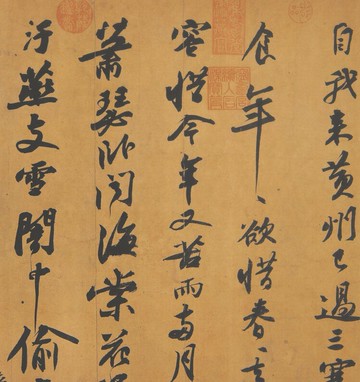 自我来黄州已過三寒
食年〻欲惜春去
容惜今年又苦雨兩月
蕭瑟卧聞海棠花
汙燕支雪闇中偷